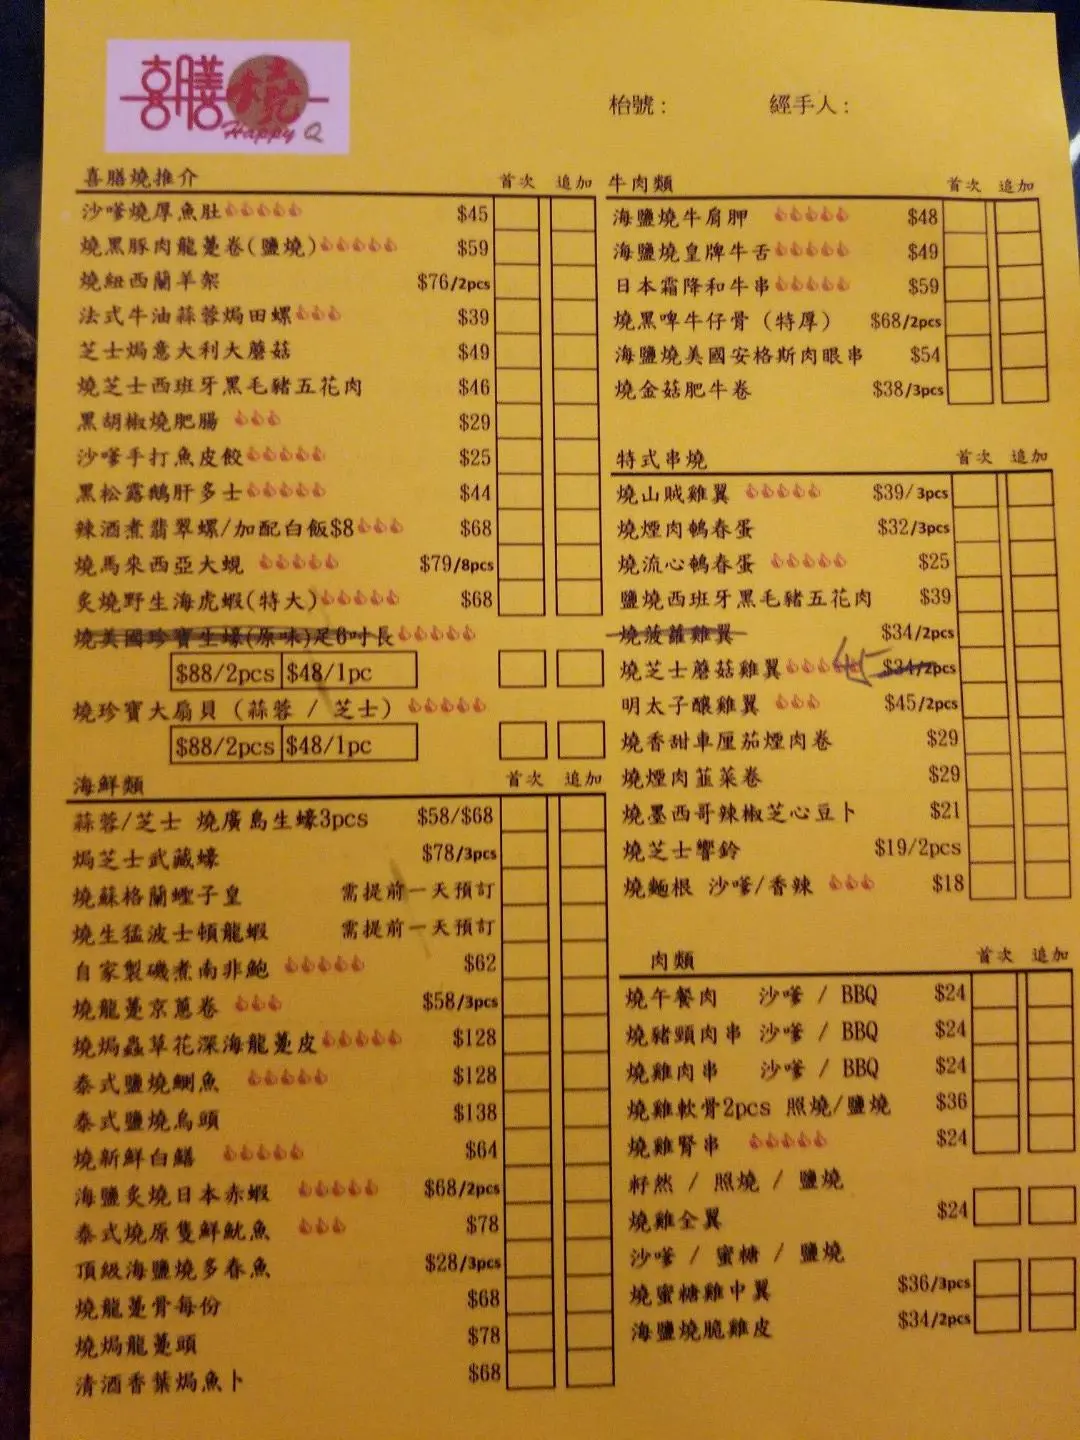 喜膳燒
Happy Q
枱號： 經手人：
喜膳燒推介 首次 追加
沙嗲燒厚魚肚 $45
燒黑豚肉龍躉卷(鹽燒) $59
燒紐西蘭羊架 $76/2pcs
法式牛油蒜蓉焗田螺 $39
芝士焗意大利大蘑菇 $49
燒芝士西班牙黑毛豬五花肉 $46
黑胡椒燒肥腸 $29
沙嗲手打魚皮餃 $25
黑松露鵝肝多士 $44
辣酒煮翡翠螺/加配白飯$8 $68
燒馬來西亞大蜆 $79/8pcs
炙燒野生海虎蝦(特大) $68
燒美國珍寶生蠔(原味)足6吋長
$88/2pcs $48/1pc
燒珍寶大扇貝 (蒜蓉 / 芝士)
$88/2pcs $48/1pc
海鮮類 首次 追加
蒜蓉/芝士 燒廣島生蠔3pcs $58/$68
焗芝士武藏蠔 $78/3pcs
燒蘇格蘭蟶子皇 需提前一天預訂
燒生猛波士頓龍蝦 需提前一天預訂
自家製磯煮南非鮑 $62
燒龍躉京蔥卷 $58/3pcs
燒焗蟲草花深海龍躉皮 $128
泰式鹽燒鯛魚 $128
泰式鹽燒烏頭 $138
燒新鮮白鱔 $64
海鹽炙燒日本赤蝦 $68/2pcs
泰式燒原隻鮮魷魚 $78
頂級海鹽燒多春魚 $28/3pcs
燒龍躉骨每份 $68
燒焗龍躉頭 $78
清酒香葉焗魚卜 $68
牛肉類 首次 追加
海鹽燒牛肩胛 $48
海鹽燒皇牌牛舌 $49
日本霜降和牛串 $59
燒黑啤牛仔骨 (特厚) $68/2pcs
海鹽燒美國安格斯肉眼串 $54
燒金菇肥牛卷 $38/3pcs
特式串燒 首次 追加
燒山賊雞翼 $39/3pcs
燒煙肉鵪春蛋 $32/3pcs
燒流心鵪春蛋 $25
鹽燒西班牙黑毛豬五花肉 $39
燒菠蘿雞翼 $34/2pcs
燒芝士蘑菇雞翼 45 $34/2pcs
明太子釀雞翼 $45/2pcs
燒香甜車厘茄煙肉卷 $29
燒煙肉韮菜卷 $29
燒墨西哥辣椒芝心豆卜 $21
燒芝士響鈴 $19/2pcs
燒麵根 沙嗲/香辣 $18
肉類 首次 追加
燒午餐肉 沙嗲 / BBQ $24
燒豬頸肉串 沙嗲 / BBQ $24
燒雞肉串 沙嗲 / BBQ $24
燒雞軟骨2pcs 照燒/鹽燒 $36
燒雞腎串 $24
籽然 / 照燒 / 鹽燒
燒雞全翼 $24
沙嗲 / 蜜糖 / 鹽燒
燒蜜糖雞中翼 $36/3pcs
海鹽燒脆雞皮 $34/2pcs